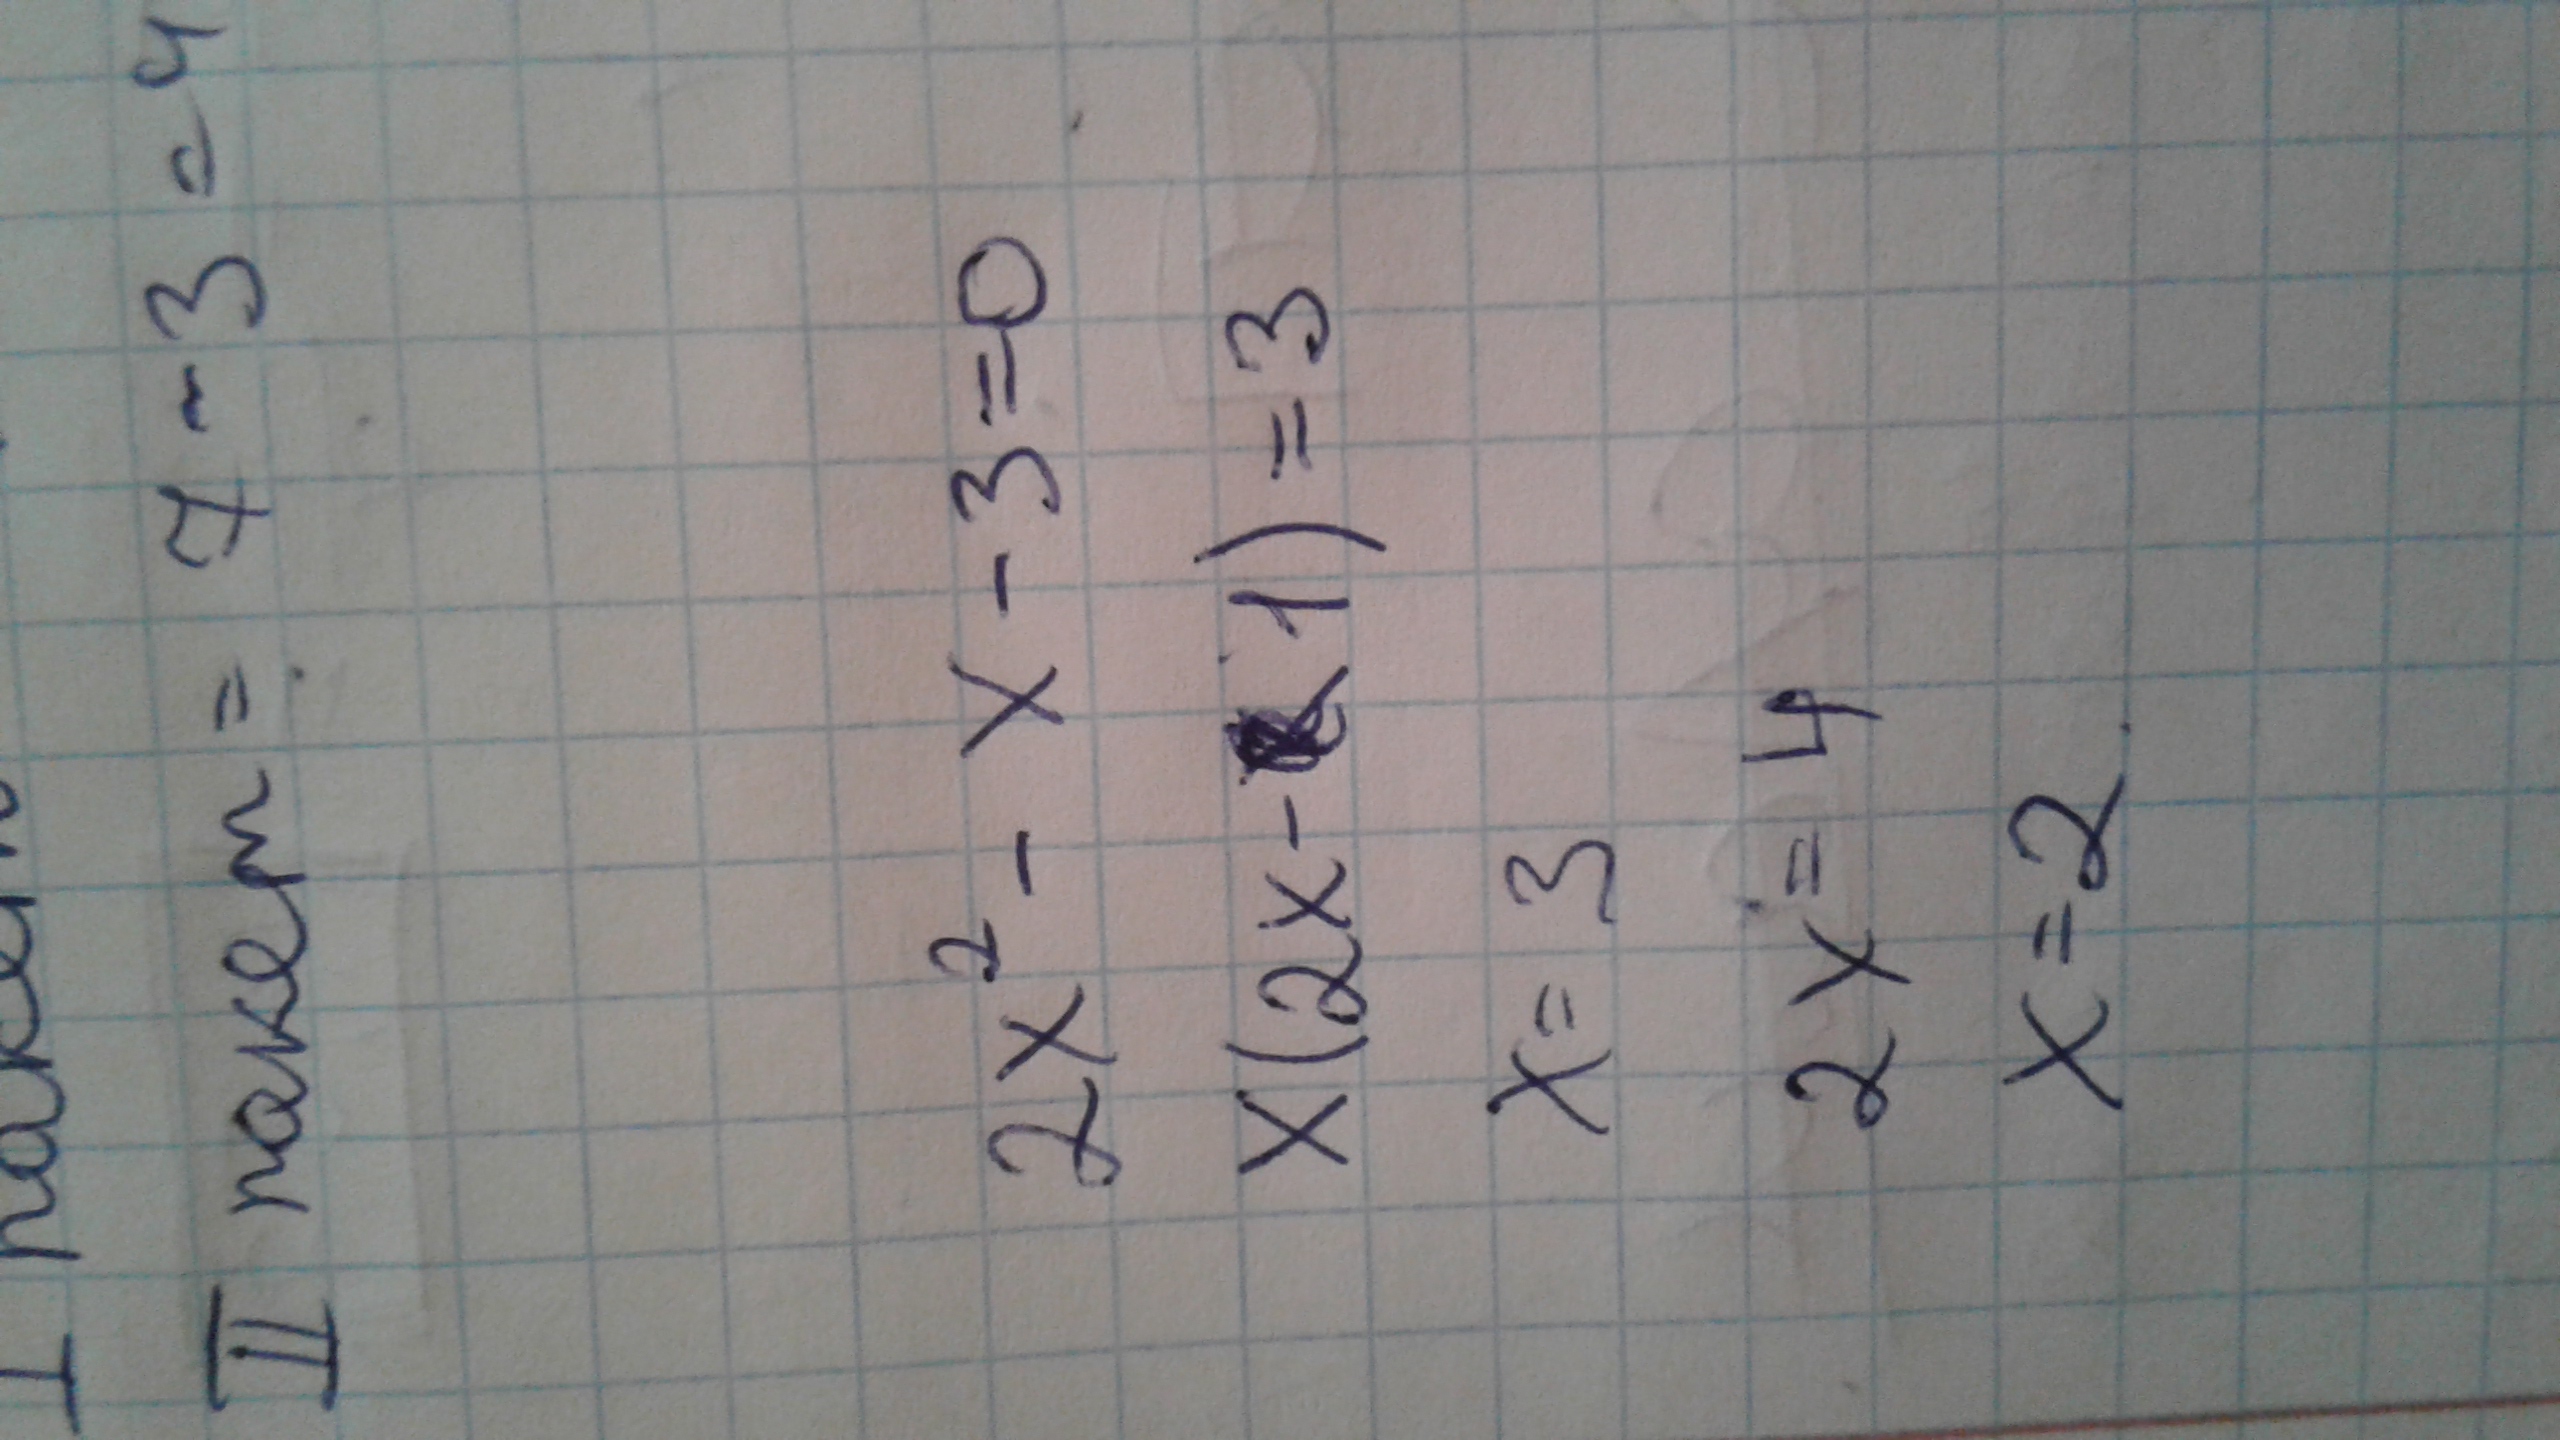 I пакет
II пакет = 7 - 3 = 4
2x² - x - 3 = 0
x(2x - 1) = 3
x = 3
2x = 4
x = 2